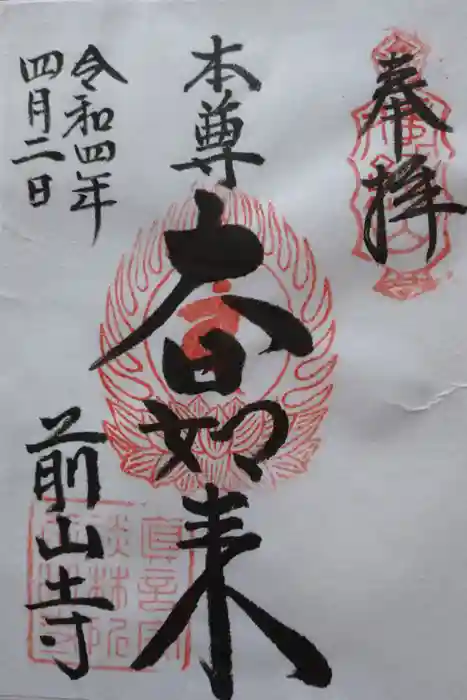 奉拝
本尊
大日如来
令和四年
四月二日
前山寺